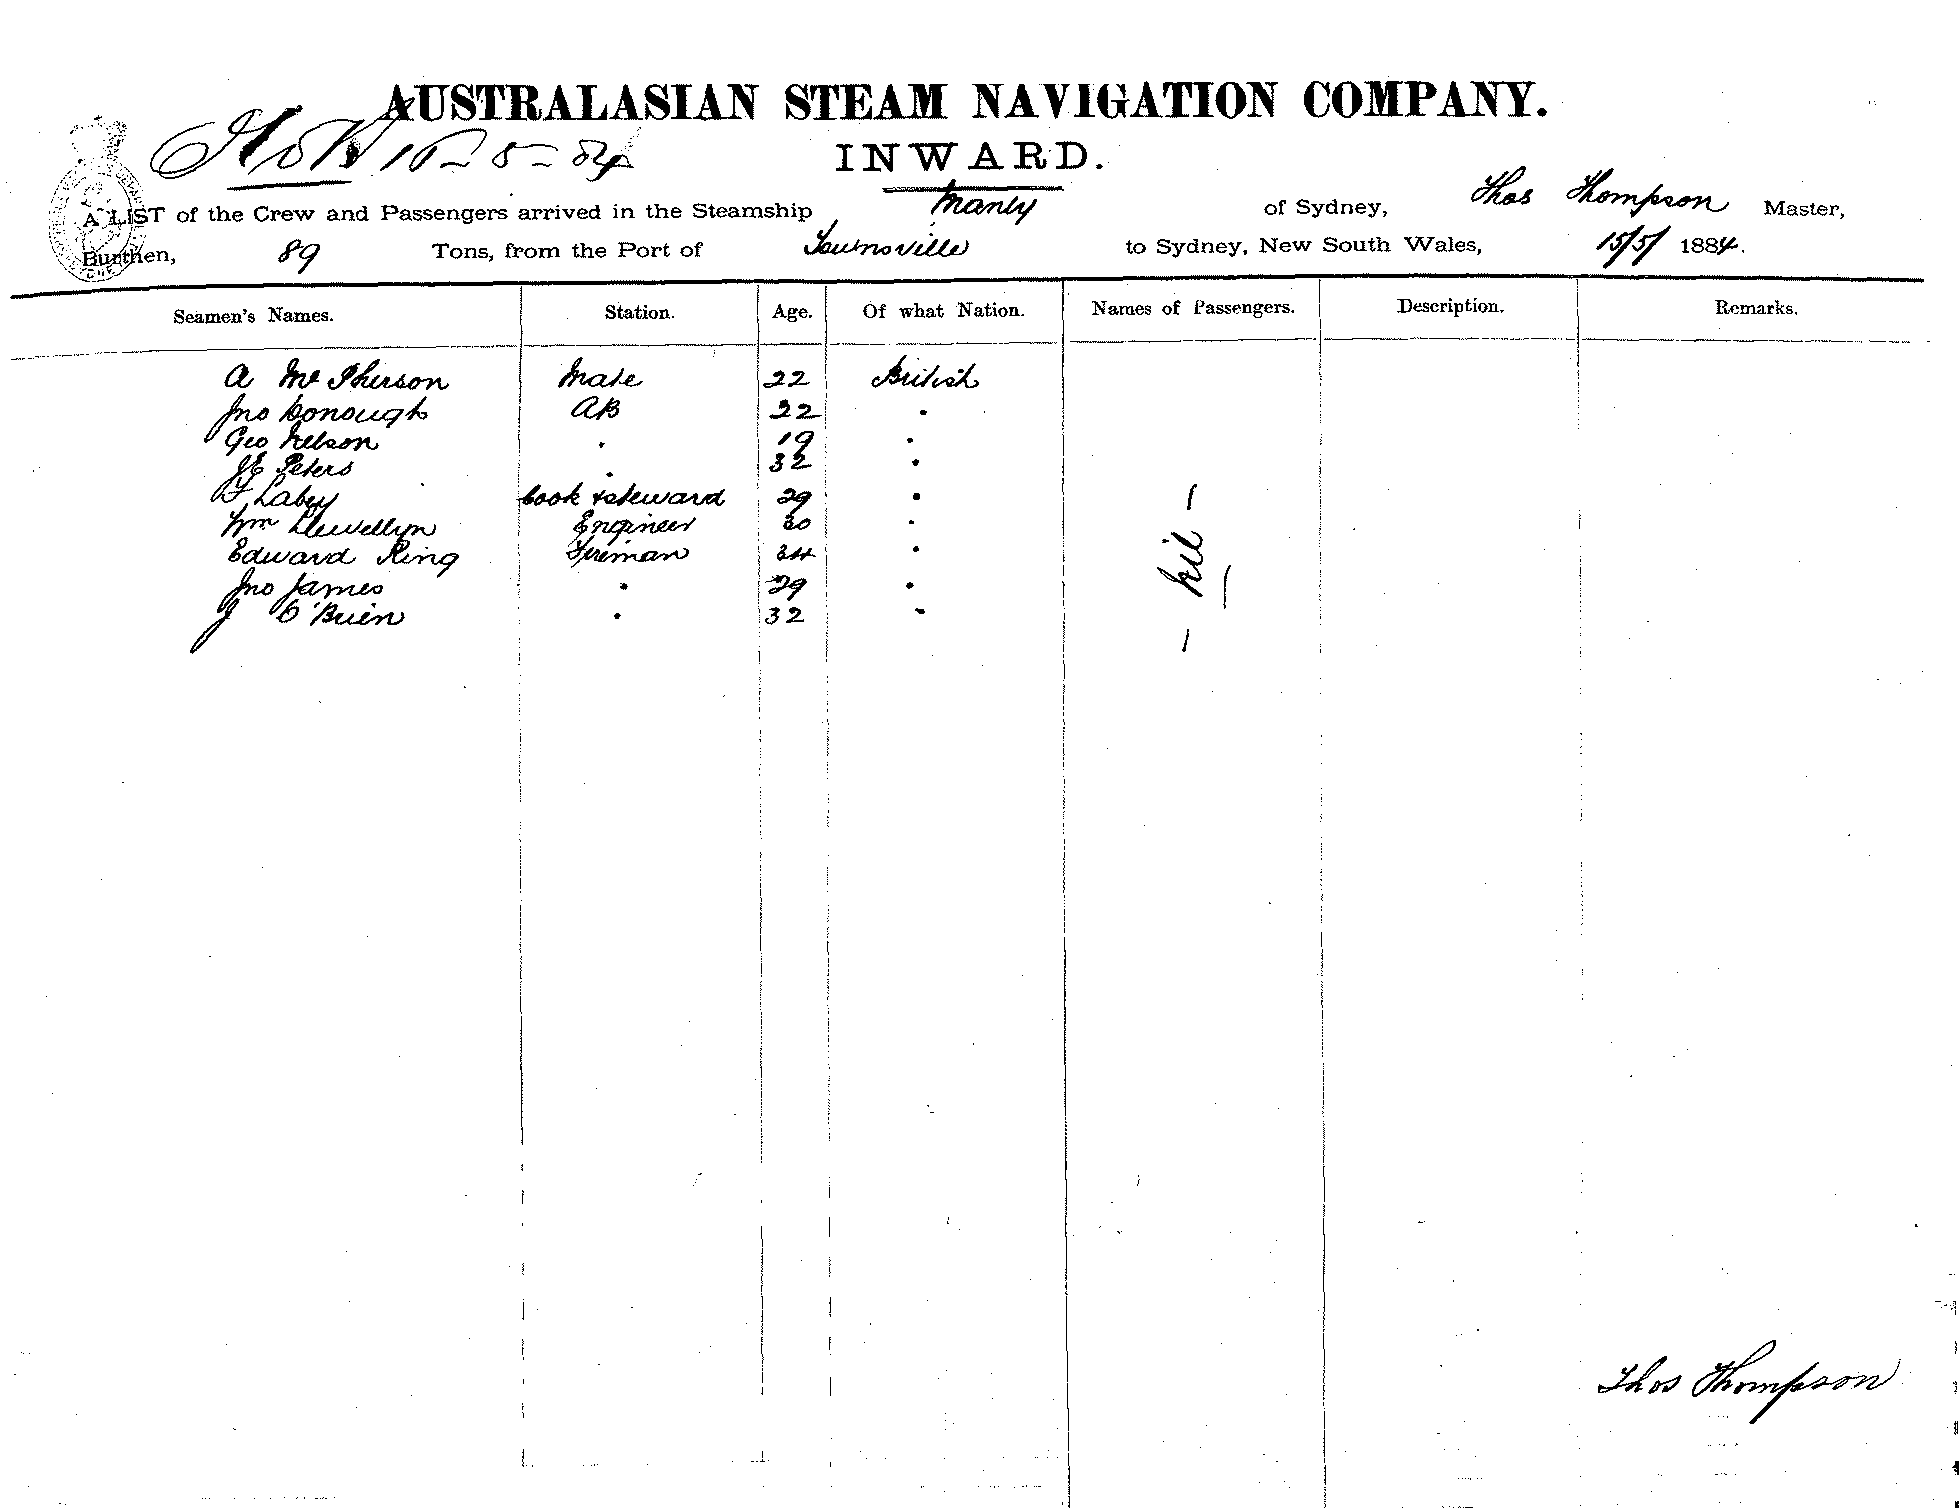 AUSTRALASIAN STEAM NAVIGATION COMPANY.
16-5-84
INWARD.
A LIST of the Crew and Passengers arrived in the Steamship Manly of Sydney, Thos Thompson Master,
Burthen, 89 Tons, from the Port of Townsville to Sydney, New South Wales, 15/5/ 1884.
Seamen's Names. Station. Age. Of what Nation. Names of Passengers. Description. Remarks.
A McPherson Mate 22 British
Jno Donough AB 22 "
Geo Nelson " 19 "
JE Peters " 32 "
F Labey Cook & Steward 29 "
Wm Llewellyn Engineer 30 "
Edward King Fireman 34 "
Jno James " 29 "
J O'Brien " 32 "
- Nil -
Thos Thompson